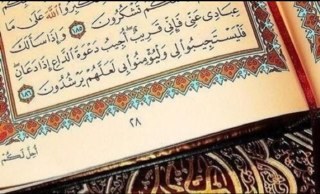 كَبِّرُوا اللَّهَ عَلَىٰ
تَشْكُرُونَ ١٨٥ وَإِذَا سَأَلَكَ
عِبَادِي عَنِّي فَإِنِّي قَرِيبٌ أُجِيبُ دَعْوَةَ الدَّاعِ إِذَا دَعَانِ
فَلْيَسْتَجِيبُوا لِي وَلْيُؤْمِنُوا بِي لَعَلَّهُمْ يَرْشُدُونَ ١٨٦
٢٨
أحل لكم